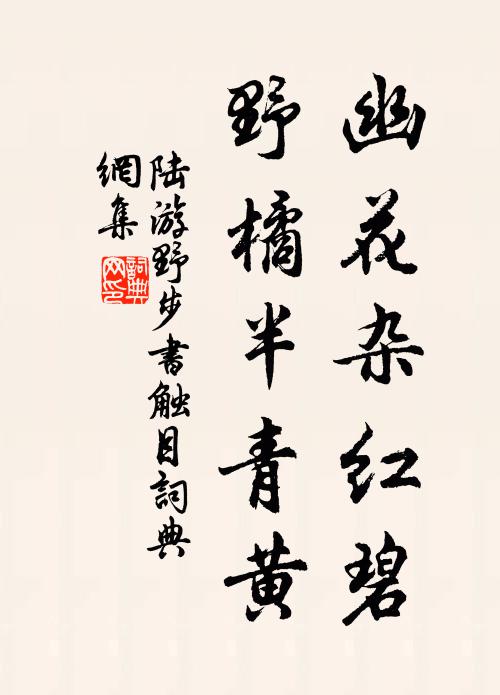 幽花杂红碧
野橘半青黄
陆游野步书触目詞典
網集
詞典
网印